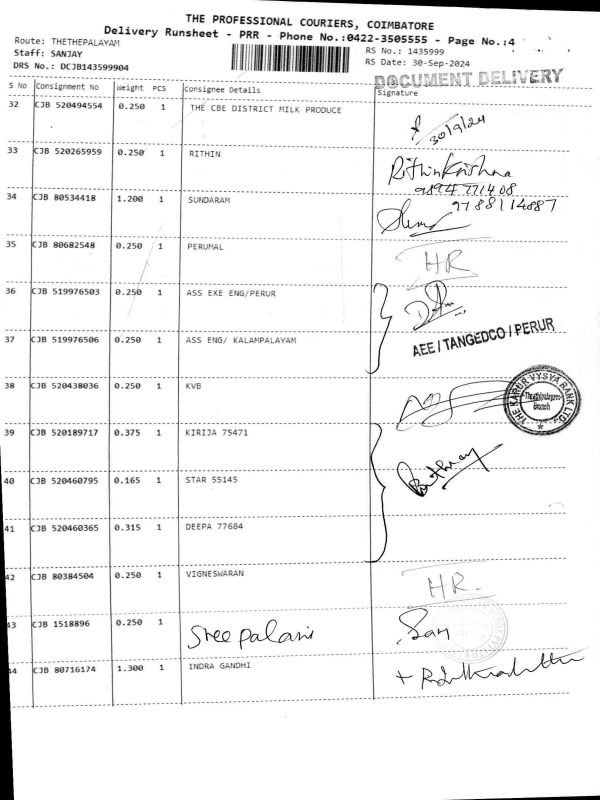 THE PROFESSIONAL COURIERS, COIMBATORE
Delivery Runsheet - PRR - Phone No.:0422-3505555 - Page No.:4
Route: THETHEPALAYAM
Staff: SANJAY
DRS No.: DCJB143599904
RS No.: 1435999
RS Date: 30-Sep-2024
DOCUMENT DELIVERY
S No Consignment No Weight PCS Consignee Details Signature
32 CJB 520494554 0.250 1 THE CBE DISTRICT MILK PRODUCE
30/9/24
33 CJB 520265959 0.250 1 RITHIN RithinKrishna
9894771408
34 CJB 80534418 1.200 1 SUNDARAM 9788114887
35 CJB 80682548 0.250 1 PERUMAL HR
36 CJB 519976503 0.250 1 ASS EXE ENG/PERUR
AEE / TANGEDCO / PERUR
37 CJB 519976506 0.250 1 ASS ENG/ KALAMPALAYAM
38 CJB 520438036 0.250 1 KVB
THE KARUR VYSYA BANK LTD.
Branch
39 CJB 520189717 0.375 1 KIRIJA 75471
40 CJB 520460795 0.165 1 STAR 55145
41 CJB 520460365 0.315 1 DEEPA 77684
42 CJB 80384504 0.250 1 VIGNESWARAN HR.
43 CJB 1518896 0.250 1 Sree palani
44 CJB 80716174 1.300 1 INDRA GANDHI